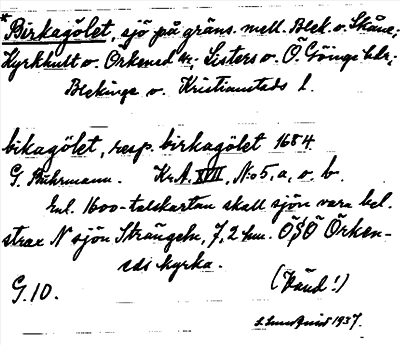 *Birkagölet, sjö på gräns. mell. Blek. o. Skåne;
Kyrkhult o. Örkened sn; Listers o. Ö. Göinge hdr;
Blekinge o. Kristianstads l.
bikagölet, resp. birkagölet 1684
G. Buhrmann. Kr.A. XVII, N:o 5, a, o. b.
Enl. 1600-talskartan skall sjön vara bel.
strax N sjön Strängeln, 7,2 km. ÖSÖ Örken-
eds kyrka.
G.10. (Vänd!)
S. Lundquist 1937.